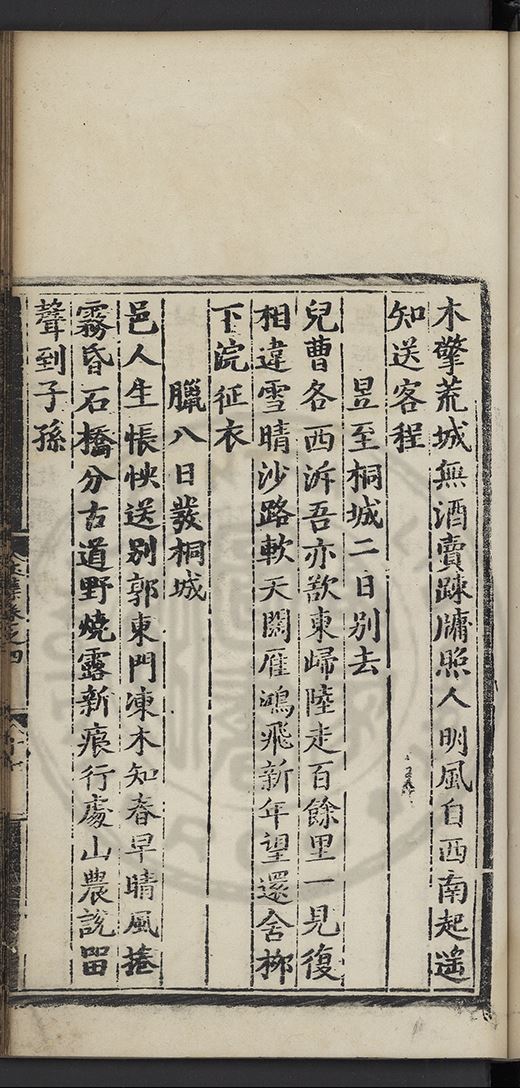 木擎荒城無酒賣踈牖照人明風自西南起遥
知送客程
昱至桐城二日别去
兒曹各西泝吾亦歘東歸陸走百餘里一見復
相違雪晴沙路軟天闊雁鴻飛新年望還舍栁
下浣征衣
臘八日發桐城
邑人生悵怏送别郭東門凍木知春早晴風捲
霧昏石橋分古道野燒露新痕行處山農說留
聲到子孫
集卷之四